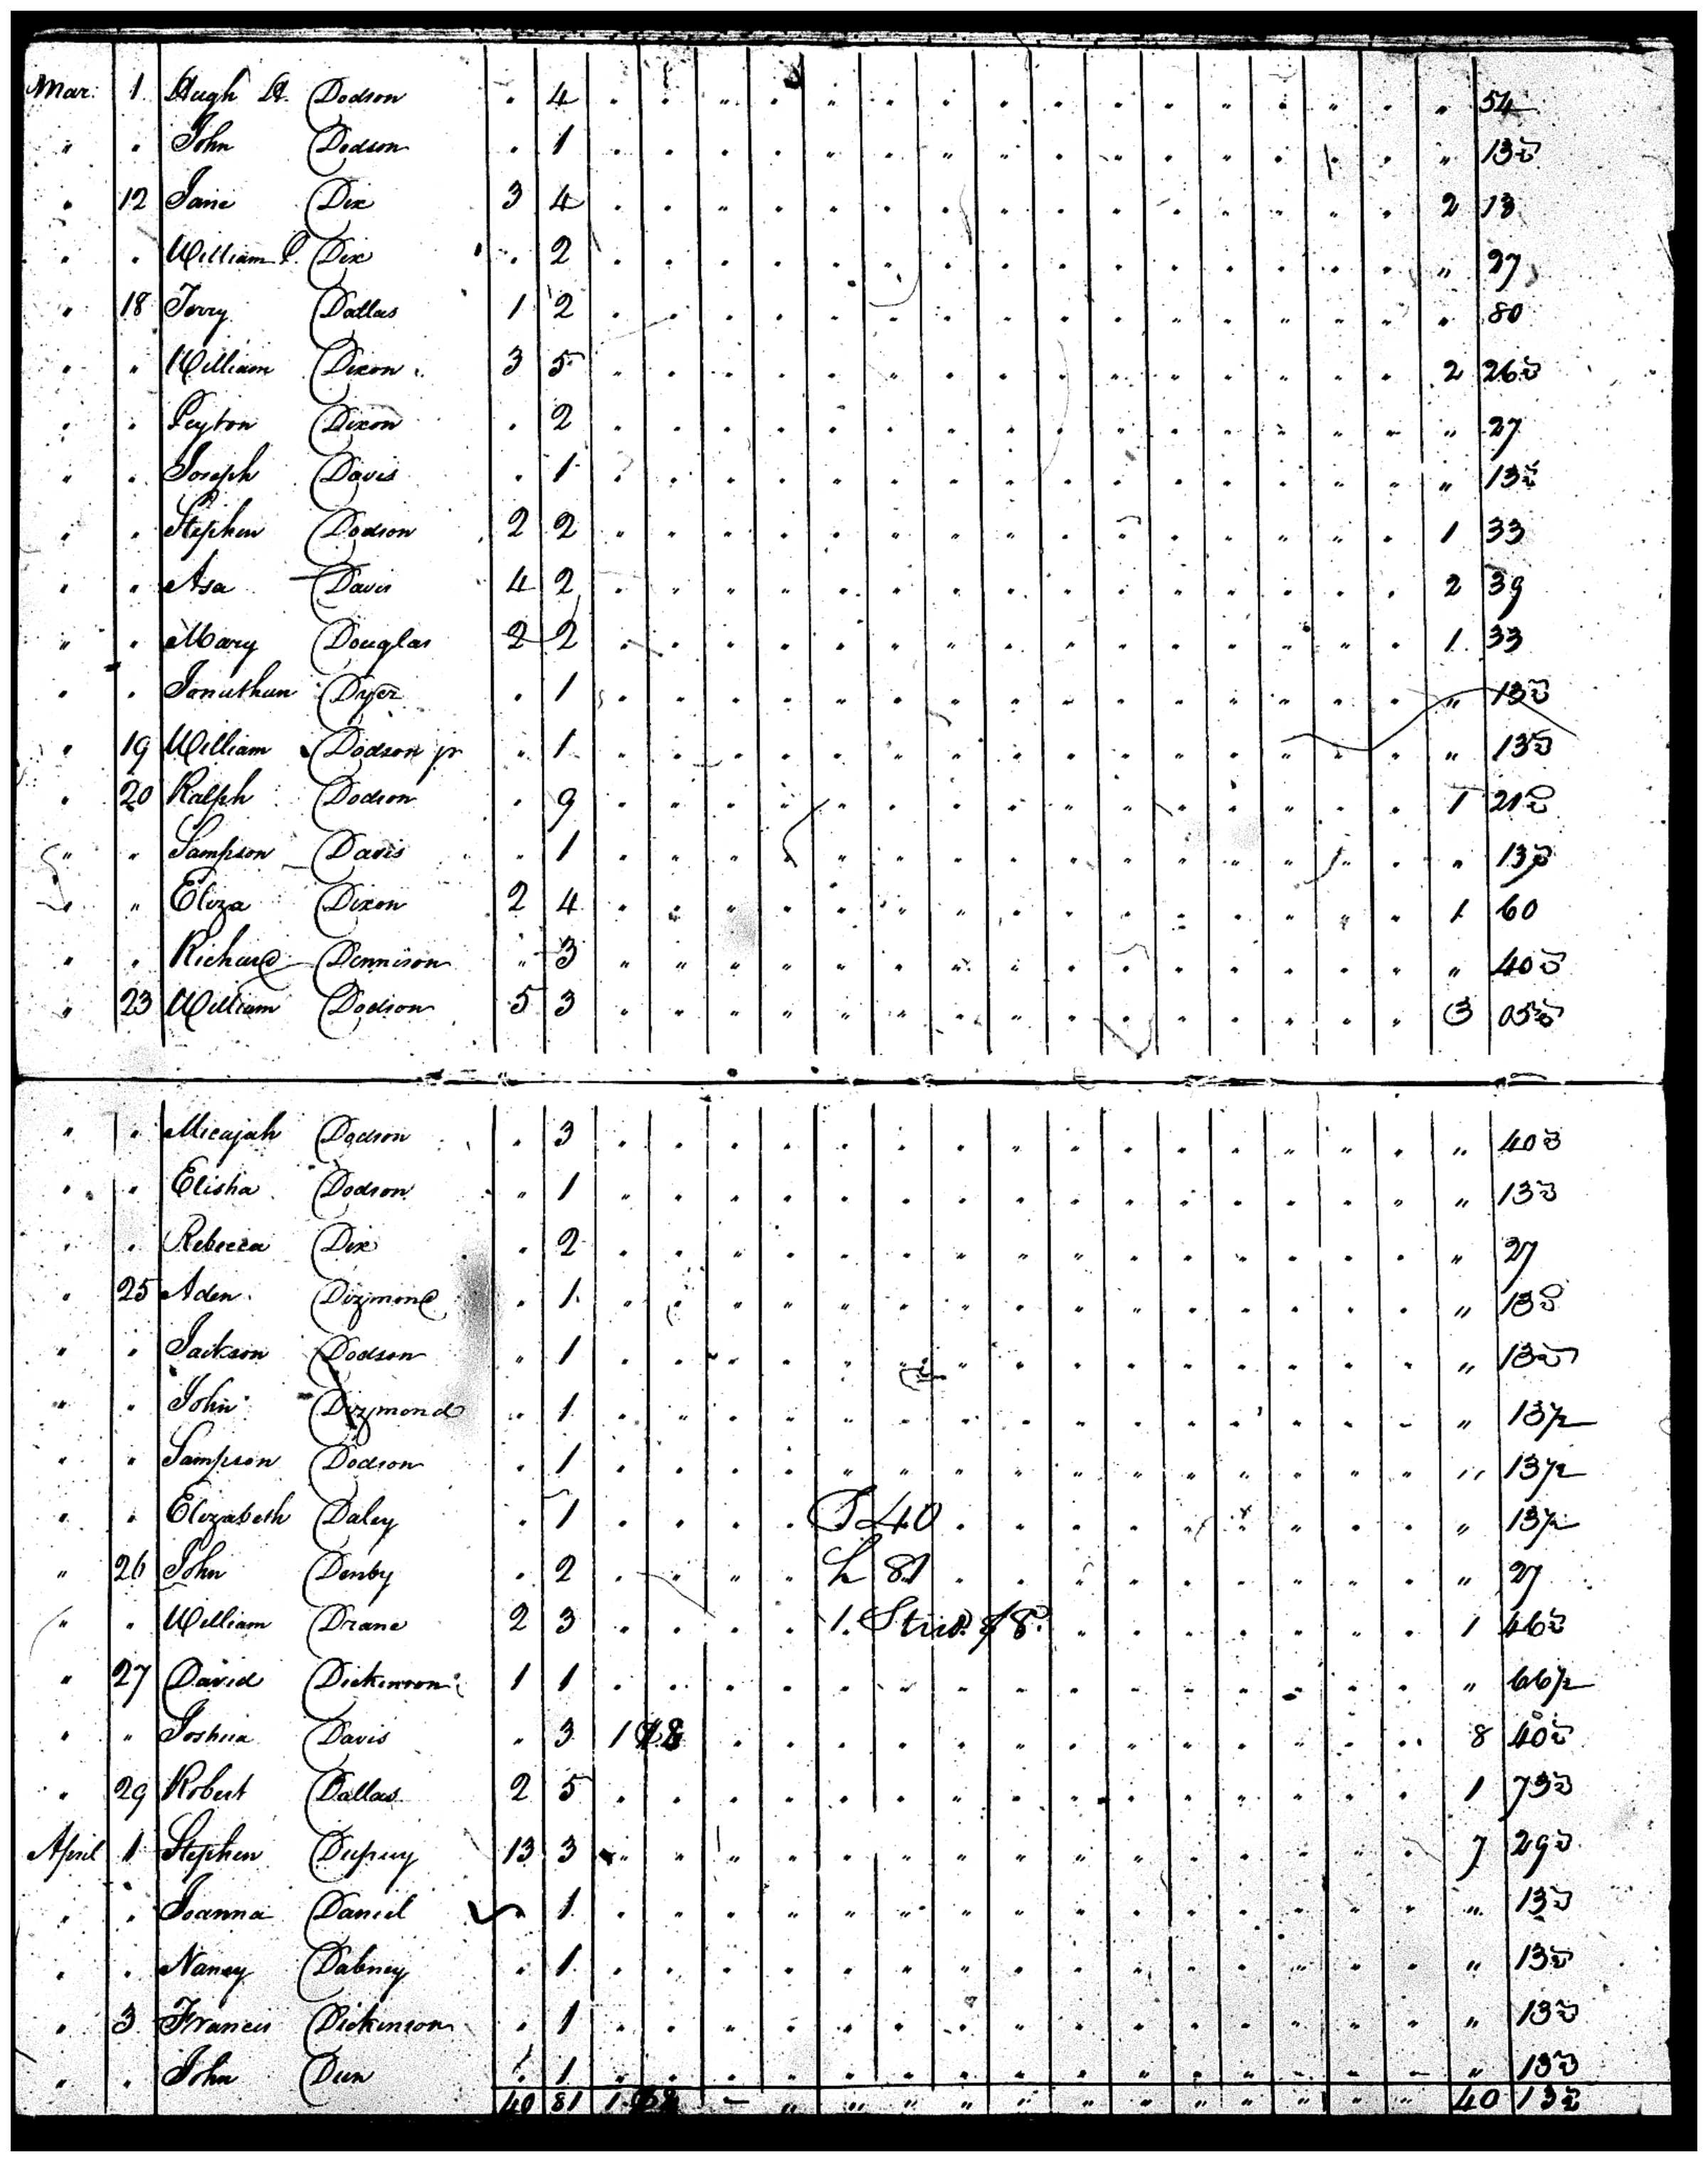 Mar. 1 Hugh A. Dodson . 4 . . „ . „ . . „ . . . „ . „ . „ 54
„ . John Dodson . 1 . . . . „ . „ „ . . . „ . . . „ 13½
. 12 Jane Dix 3 4 . . „ . . . . . . . . . . „ . 2 13
„ . William P. Dix . 2 . . . . . . . . . . . . . . . „ 27
„ 18 Terry Dallas 1 2 . . . . . . . . . . . . . . . . 80
. „ William Dixon 3 5 . . . . . . . . . . . . . . . 2 26½
. . Peyton Dixon . 2 . . . . . . . . . . . . . . . „ 27
„ . Joseph Davis . 1 . . . . . . . . . . . . . . . „ 13½
. . Stephen Dodson 2 2 . . . . . . . . . . . . . . . 1 33
. „ Asa Davis 4 2 . . . . . . . . . . . . . . . 2 39
„ . Mary Douglas 2 2 . . . . . . . . . . . . . . . 1 33
. . Jonathan Dyer . 1 . . . . . . . . . . . . . . . „ 13½
. 19 William Dodson jr „ 1 . . . . . . . . . . . . . . . „ 13½
. 20 Ralph Dodson . 9 . . . . . . . . . . . . . . . 1 21½
„ „ Sampson Davis . 1 . . . . . . . . . . . . . . . „ 13½
. „ Eliza Dixon 2 4 . . . . . . . . . . . . . . . 1 60
„ . Richard Dennison „ 3 . . . . . . . . . . . . . . . „ 40½
„ 23 William Dodson 5 3 . . . . . . . . . . . . . . . 3 05½
„ . Micajah Dodson . 3 . . . . . . . . . . . . . . . „ 40½
. „ Elisha Dodson „ 1 . . . . . . . . . . . . . . . „ 13½
. . Rebecca Dix . 2 . . . . . . . . . . . . . . . „ 27
„ 25 Aden Dizmond . 1 . . . . . . . . . . . . . . . „ 13½
„ . Jackson Dodson „ 1 . . . . . . . . . . . . . . . „ 13½
„ . John Dizmond „ 1 . . . . . . . . . . . . . . . „ 13½
„ . Sampson Dodson . 1 . . . . . . . . . . . . . . . „ 13½
. . Elizabeth Daley . 1 . . . . 40 . . . . . . . . . „ 13½
„ 26 John Denby . 2 . . „ . L 81 . . . . . . . . . „ 27
„ „ William Drane 2 3 . . . . 1. Stud. $8. . . . . . . . 1 46½
„ 27 David Dickinson 1 1 . . . . . . . . . . . . . . . „ 66½
„ „ Joshua Davis „ 3 1 $8 . . . . . . . . . . . . . 8 40½
. 29 Robert Dallas 2 5 . . . . . . . . . . . . . . . 1 73½
April 1 Stephen Dupuy 13 3 . . . . . . . . . . . . . . . 7 29½
. . Joanna Daniel . 1 . . . . . . . . . . . . . . . „ 13½
. . Nancy Dabney . 1 . . . . . . . . . . . . . . . „ 13½
. 3 Francis Dickinson . 1 . . . . . . . . . . . . . . . „ 13½
„ . John Dun . 1 . . . . . . . . . . . . . . . „ 13½
40 81 1 $8 – „ „ „ „ „ „ „ „ „ „ „ 40 13½